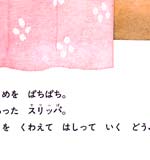 めを　ぱちぱち。
った　スリッパ。
を　くわえて　はしって　いく　どう